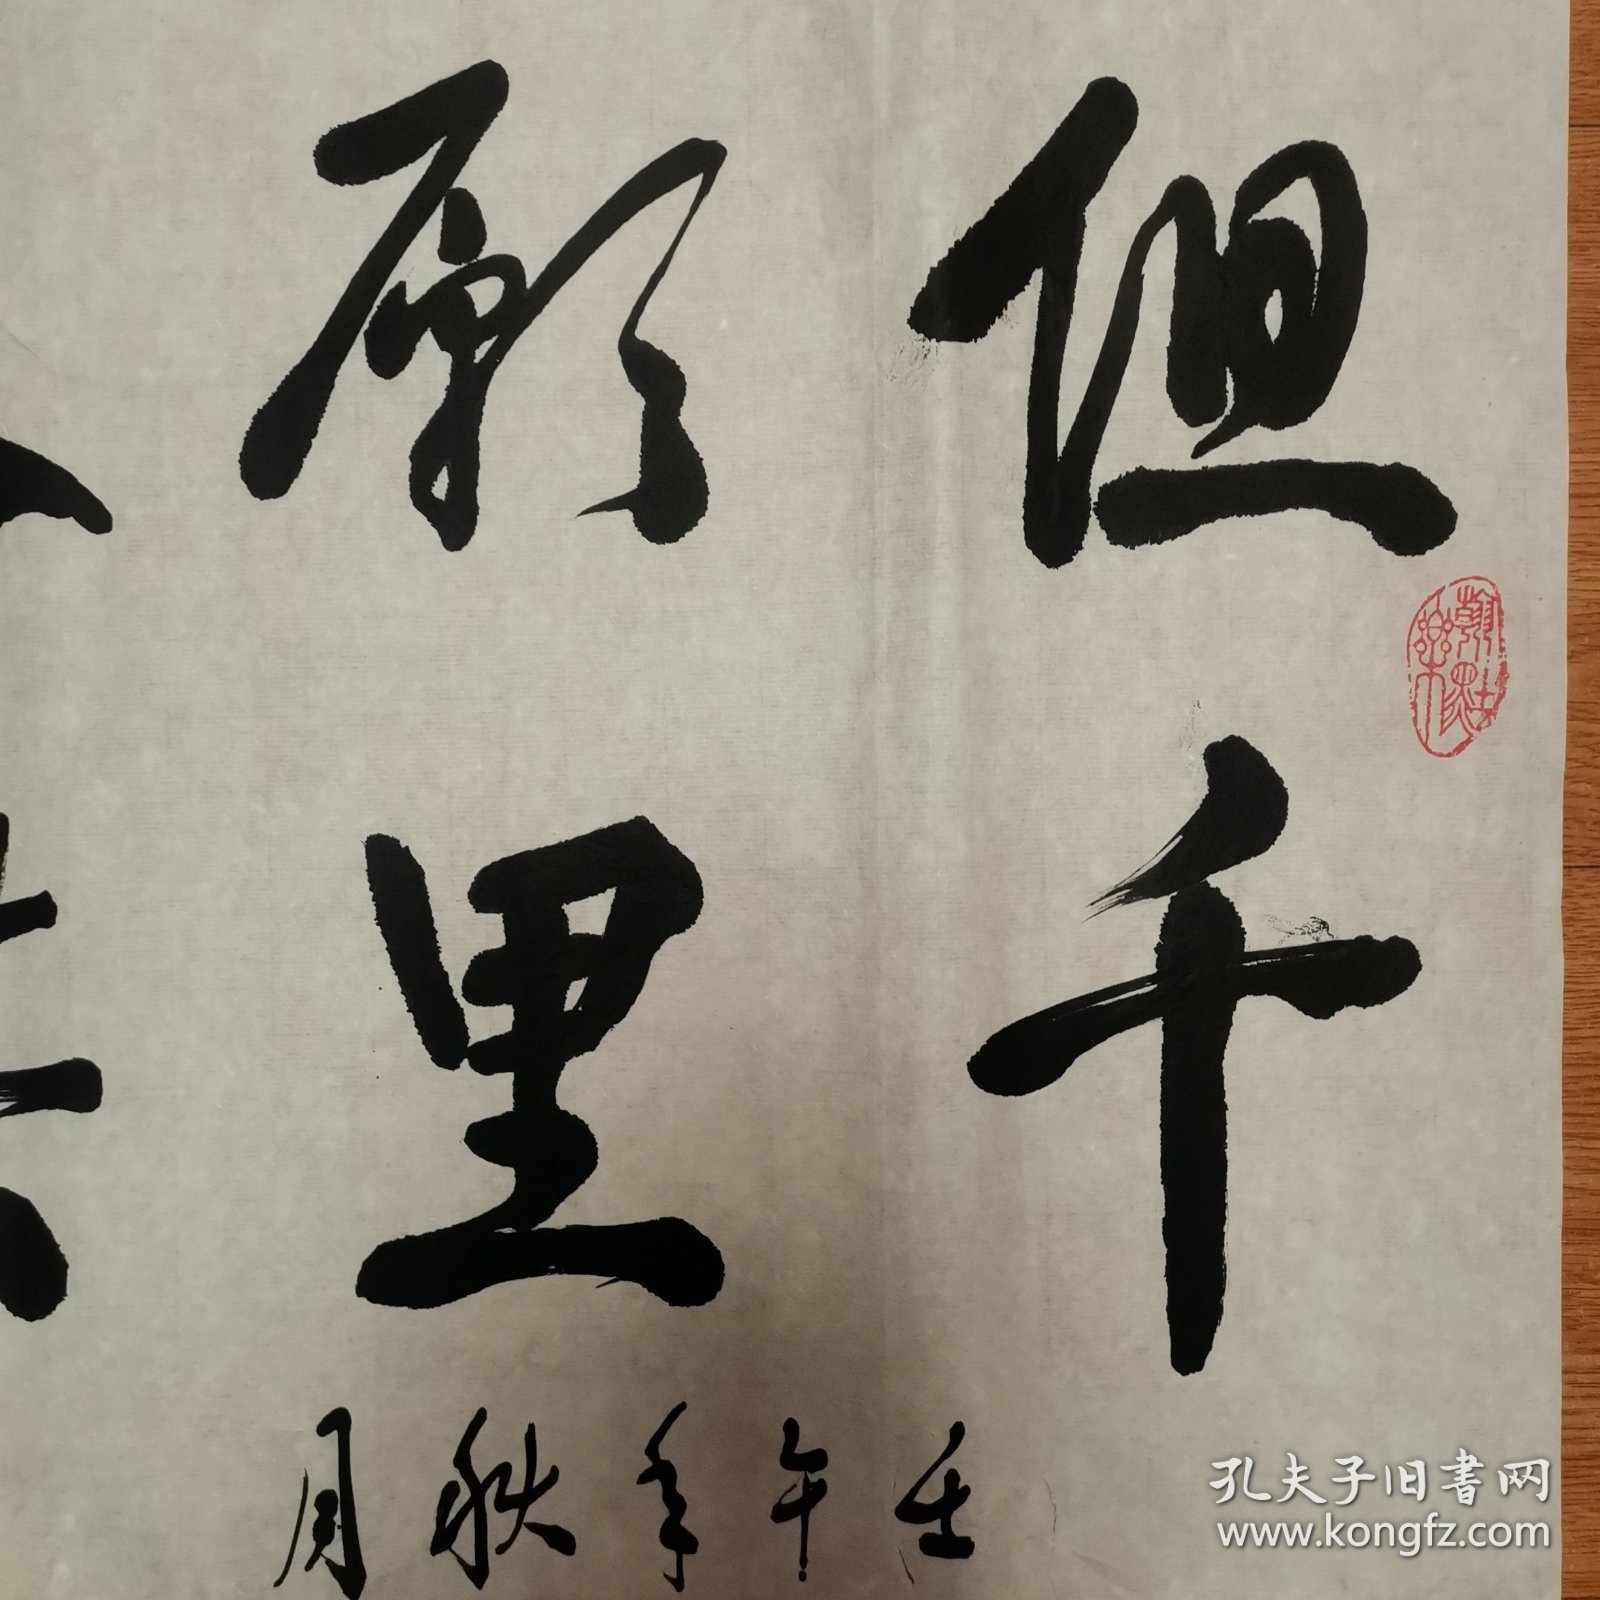 但千
愿里
壬午年秋月
孔夫子旧书网
www.kongfz.com